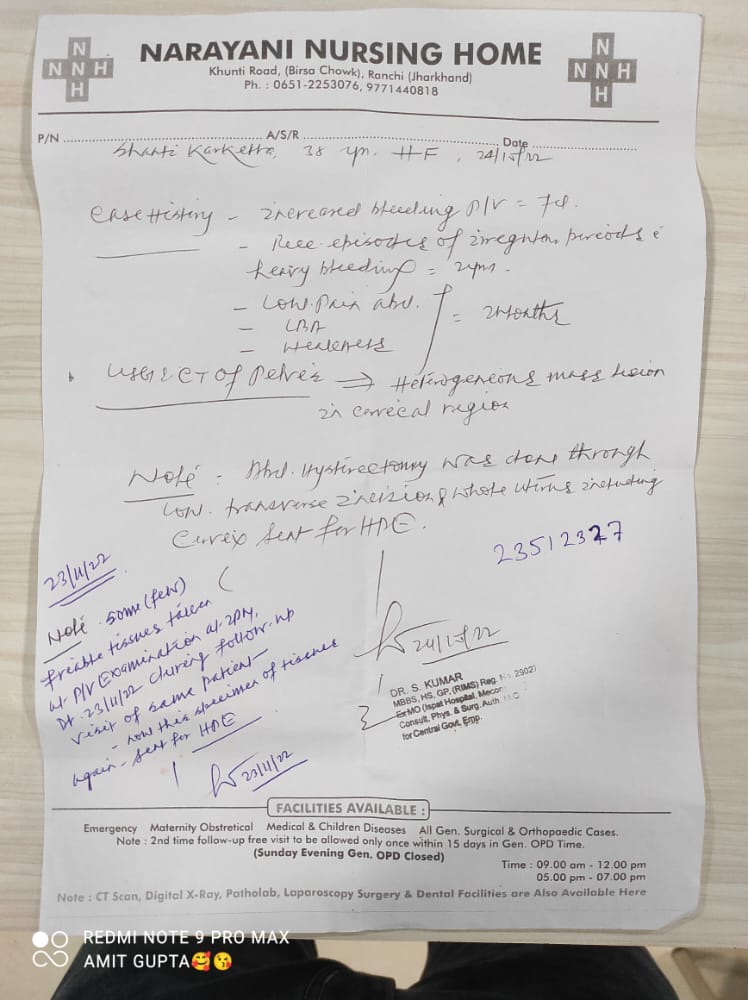 N
N N H
H
NARAYANI NURSING HOME
Khunti Road, (Birsa Chowk), Ranchi (Jharkhand)
Ph. : 0651-2253076, 9771440818
N
N N H
H
P/N A/S/R Date
Shanti Karketta, 38 yrs. HF, 24/10/22
Case History - increased bleeding P/V = 7d.
- Rec. episodes of irregular periods c
heavy bleeding = 2yrs.
- Low. Pain abd.
- LBA
- Weakness
= 2months
USG & CT of Pelvis ⇒ Heterogeneous mass lesion
in cervical region
Note : Abd. Hysterectomy was done through
Low. transverse incision & whole uterus including
Cervix sent for HPE.
23512327
24/10/22
DR. S. KUMAR
MBBS, HS, GP, (RIMS) Reg. No. 29027
Ex MO (Ispat Hospital, Mecon)
Consult, Phys. & Surg. Auth
for Central Govt. Emp.
23/11/22
Note . some (few)
friable tissues taken
at P/V Examination at 2PM,
Dt. 23/11/22 during follow-up
visit of same patient-
- now this specimen of tissues
again - sent for HPE
23/11/22
FACILITIES AVAILABLE :
Emergency Maternity Obstretical Medical & Children Diseases All Gen. Surgical & Orthopaedic Cases.
Note : 2nd time follow-up free visit to be allowed only once within 15 days in Gen. OPD Time.
(Sunday Evening Gen. OPD Closed)
Time : 09.00 am - 12.00 pm
05.00 pm - 07.00 pm
Note : CT Scan, Digital X-Ray, Patholab, Laparoscopy Surgery & Dental Facilities are Also Available Here
REDMI NOTE 9 PRO MAX
AMIT GUPTA🥰😘